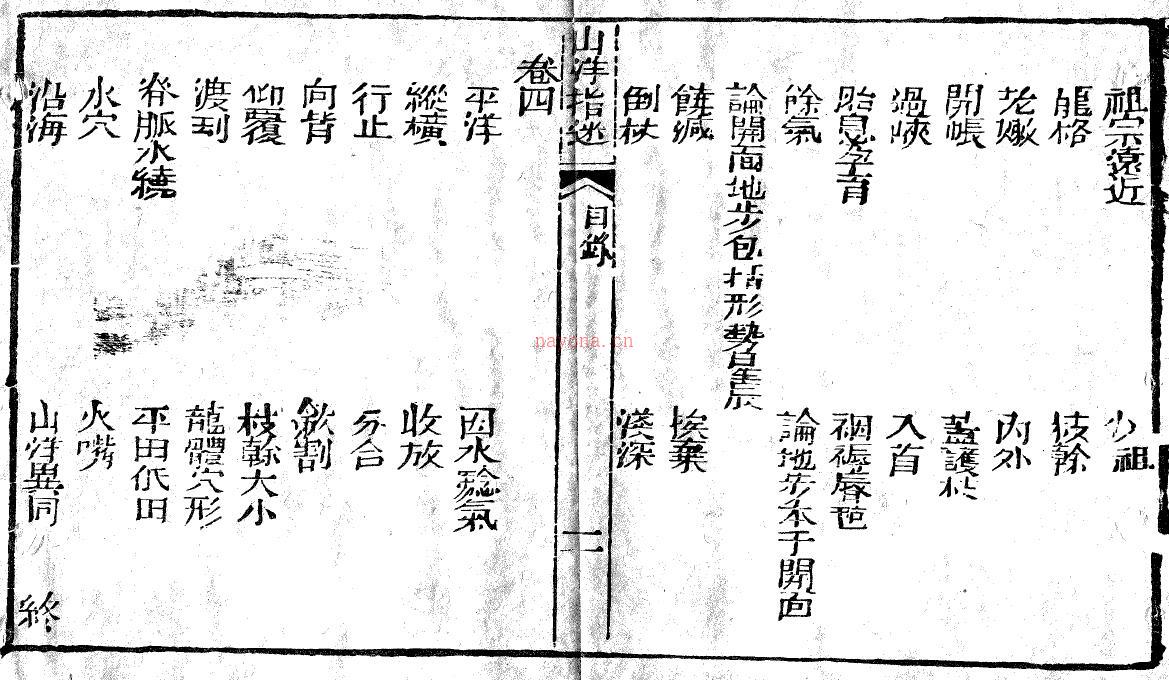 祖宗遠近
少祖
龍格
枝幹
老嫩
內外
開帳
蓋護枝
過峽
入首
胎息孕育
裀褥唇毡
餘氣
論地步本于開面
論開面地步包括形勢星辰
饒減
挨棄
倒杖
淺深
山洋指迷
目錄
二
卷四
平洋
因水驗氣
縱橫
收放
行止
分合
向背
飲割
仰覆
枝幹大小
渡到
龍體穴形
脊脈水繞
平田低田
水穴
火嘴
沿海
山洋異同
終
payona.cn